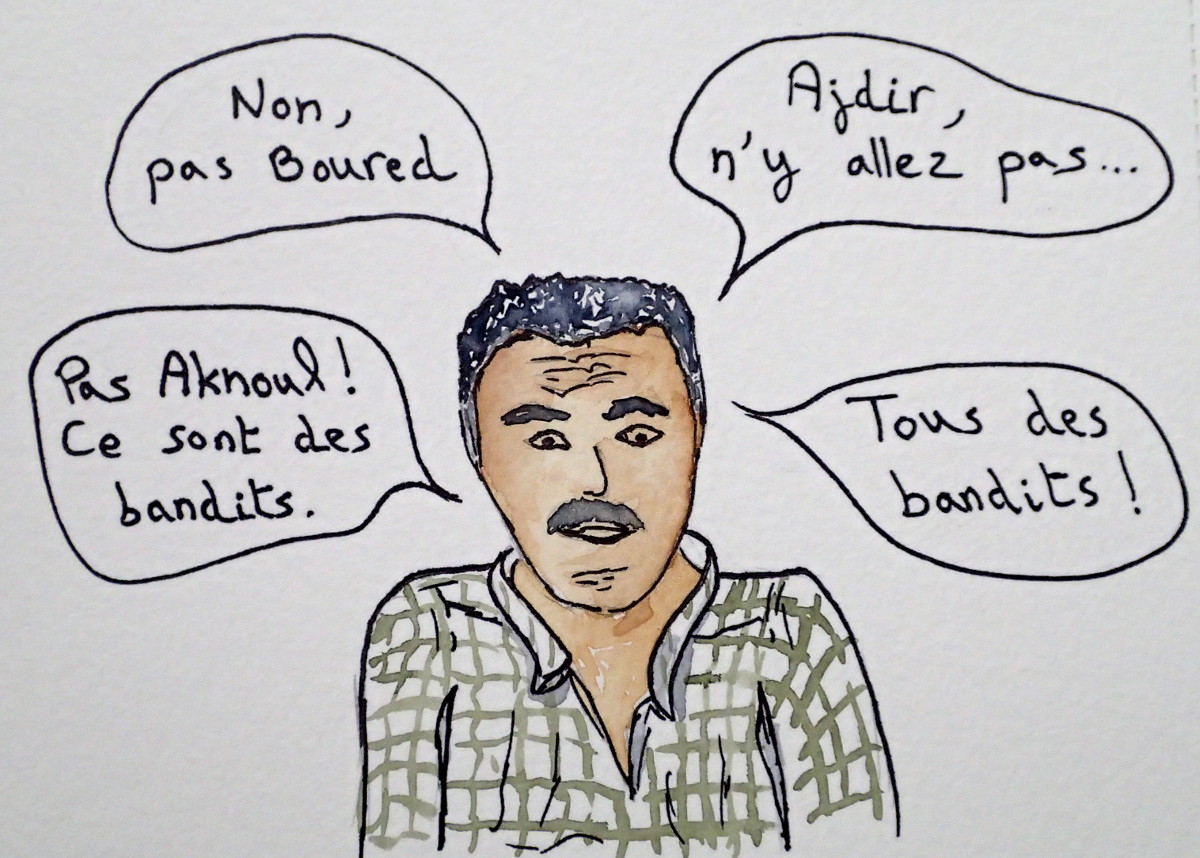 Non,
pas Boured
Ajdir,
n'y allez pas...
Pas Aknoul!
Ce sont des
bandits.
Tous des
bandits!